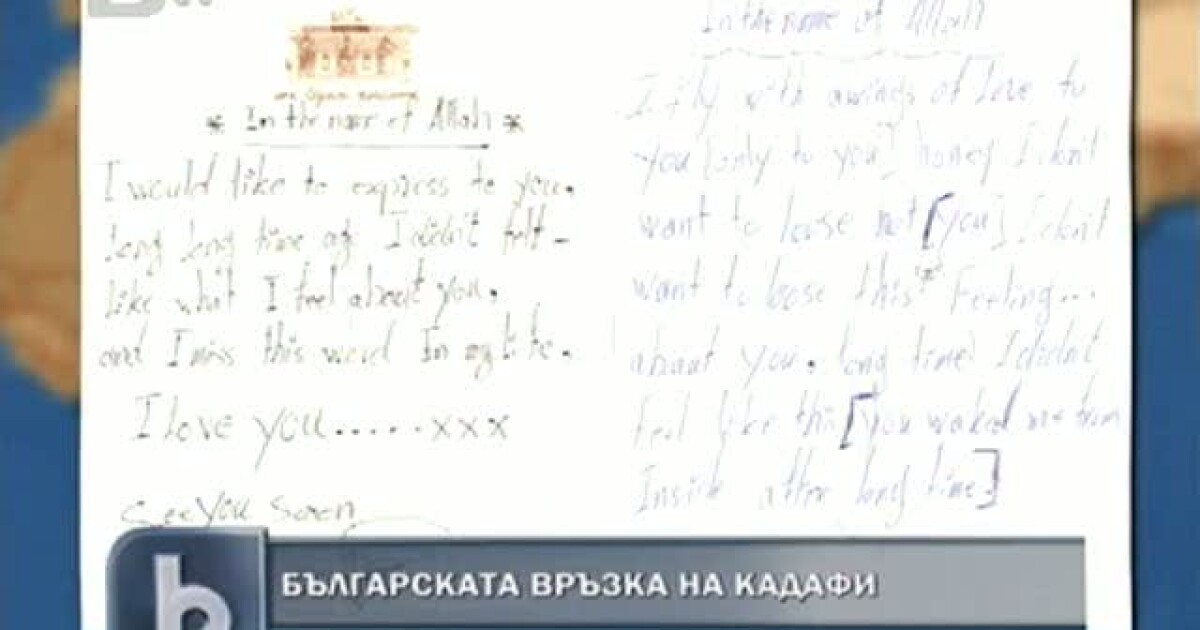 * In the name of Allah *
I would like to express to you.
long long time ago I didn't felt -
like what I feel about you.
and I miss this word In my life.
I love you.....xxx
See you soon
In the name of Allah
I fly with a wings of love to
you [only to you] honey I don't
want to loose not [you] I don't
want to loose this feeling...
about you. long time! I didn't
feel like this [you waked me from
Inside after long time.]
b
БЪЛГАРСКАТА ВРЪЗКА НА КАДАФИ